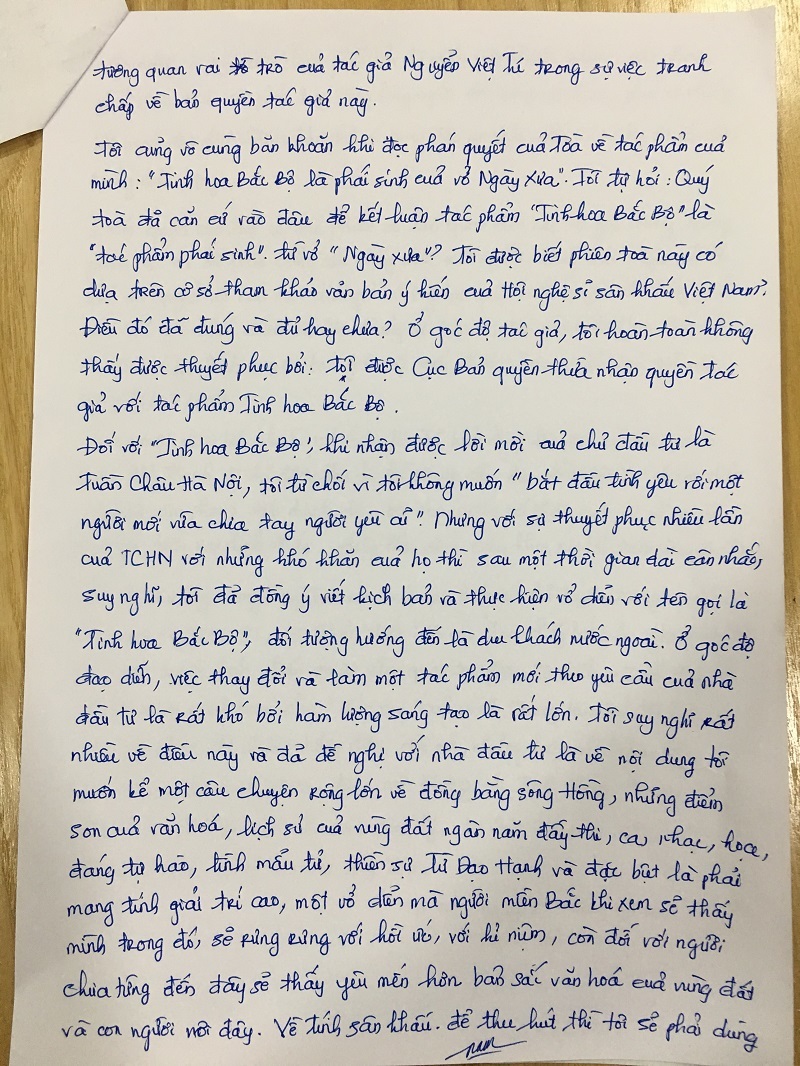 tương quan vai trò của tác giả Nguyễn Việt Tú trong sự việc tranh
chấp về bản quyền tác giả này.
Tôi cũng vô cùng băn khoăn khi đọc phán quyết của Toà về tác phẩm của
mình: "Tinh hoa Bắc Bộ là phái sinh của vở Ngày Xưa". Tôi tự hỏi: Quý
toà đã căn cứ vào đâu để kết luận tác phẩm "Tinh hoa Bắc Bộ" là
"tác phẩm phái sinh". từ vở "Ngày xưa"? Tôi được biết phiên toà này có
dựa trên cơ sở tham khảo văn bản ý kiến của Hội nghệ sĩ sân khấu Việt Nam?
Điều đó đã đúng và đủ hay chưa? Ở góc độ tác giả, tôi hoàn toàn không
thấy được thuyết phục bởi: tôi được Cục Bản quyền thừa nhận quyền tác
giả với tác phẩm Tinh hoa Bắc Bộ.
Đối với "Tinh hoa Bắc Bộ", khi nhận được lời mời của chủ đầu tư là
Tuần Châu Hà Nội, tôi từ chối vì tôi không muốn "bắt đầu tình yêu với một
người mới vừa chia tay người yêu cũ". Nhưng với sự thuyết phục nhiều lần
của TCHN với những khó khăn của họ thì sau một thời gian dài cân nhắc,
suy nghĩ, tôi đã đồng ý viết kịch bản và thực hiện vở diễn với tên gọi là
"Tinh hoa Bắc Bộ", đối tượng hướng đến là du khách nước ngoài. Ở góc độ
đạo diễn, việc thay đổi và làm một tác phẩm mới theo yêu cầu của nhà
đầu tư là rất khó bởi hàm lượng sáng tạo là rất lớn. Tôi suy nghĩ rất
nhiều về điều này và đã đề nghị với nhà đầu tư là về nội dung tôi
muốn kể một câu chuyện rộng lớn về đồng bằng sông Hồng, những điểm
son của văn hoá, lịch sử của vùng đất ngàn năm đầy thi, ca, nhạc, hoạ,
đáng tự hào, tình mẫu tử, thiền sư Từ Đạo Hạnh và đặc biệt là phải
mang tính giải trí cao, một vở diễn mà người miền Bắc khi xem sẽ thấy
mình trong đó, sẽ rưng rưng với hồi ức, với kỉ niệm, còn đối với người
chưa từng đến đây sẽ thấy yêu mến hơn bản sắc văn hoá của vùng đất
và con người nơi đây. Về tính sân khấu. để thu hút thì tôi sẽ phải dùng
nam